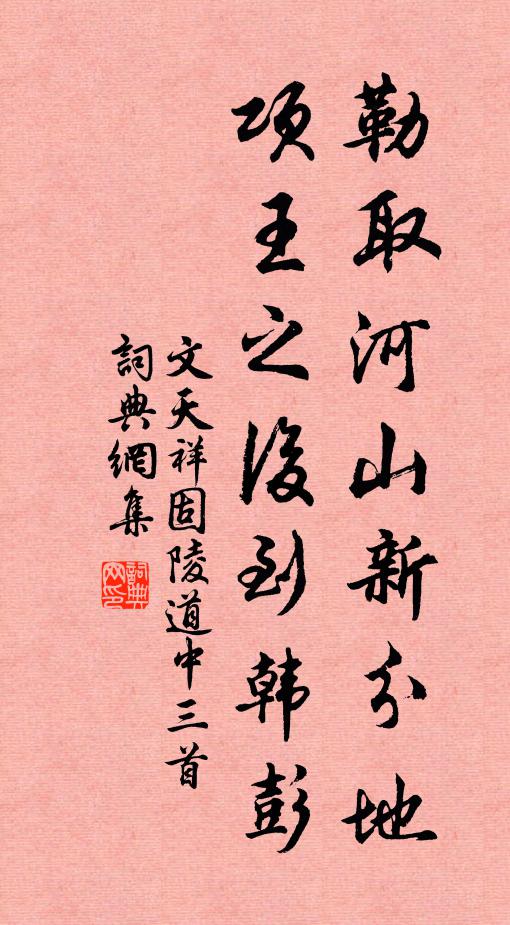 勒取河山新分地
項王之後到韩彭
文天祥固陵道中三首
詞典網集
詞典
网印